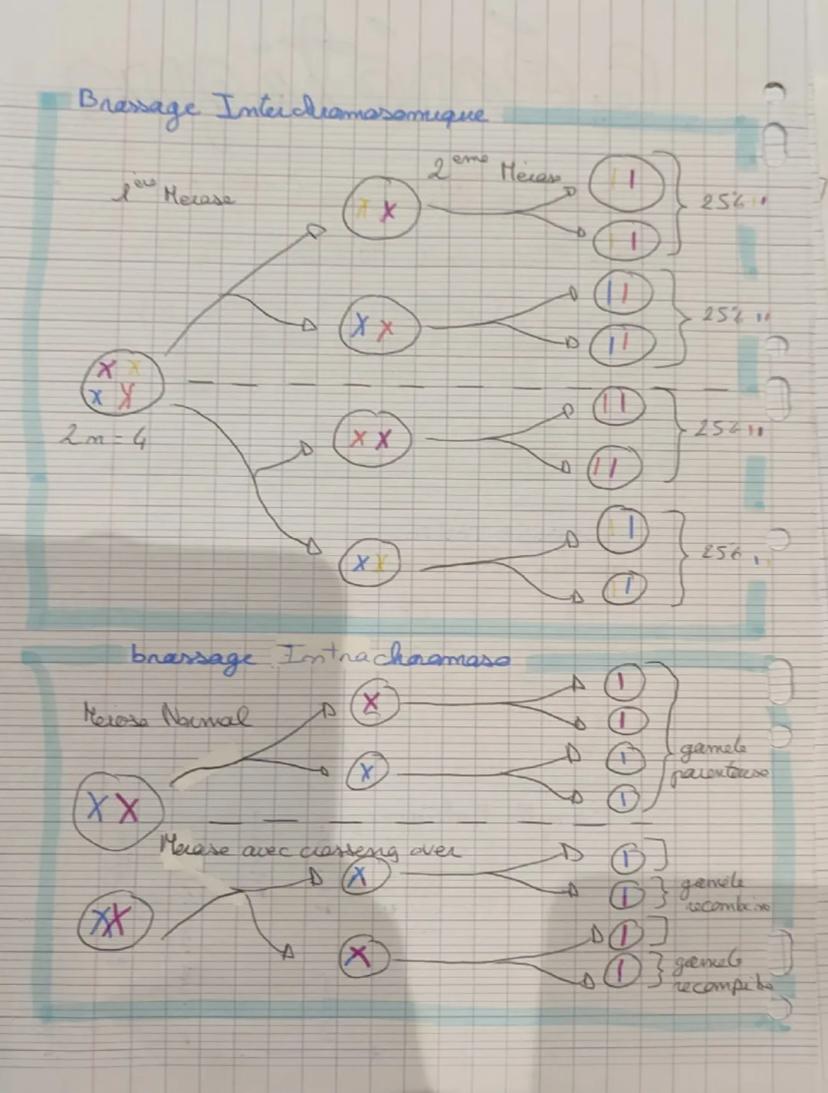 Brassage Interchromosomique
1ère Meiose
2eme Meiose
25%
25%
2n = 4
25%
25%
brassage Intrachromoso
Meiose Normal
gamete
parentause
Meiose avec crosseng over
gamete
recombine
gamete